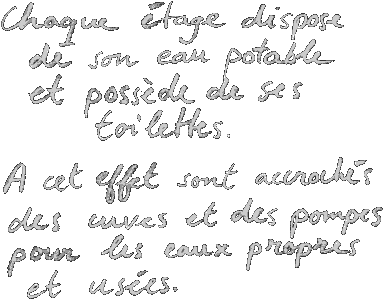 Chaque étage dispose
de son eau potable
et possède de ses
toilettes.
A cet effet sont accrochés
des cuves et des pompes
pour les eaux propres
et usées.